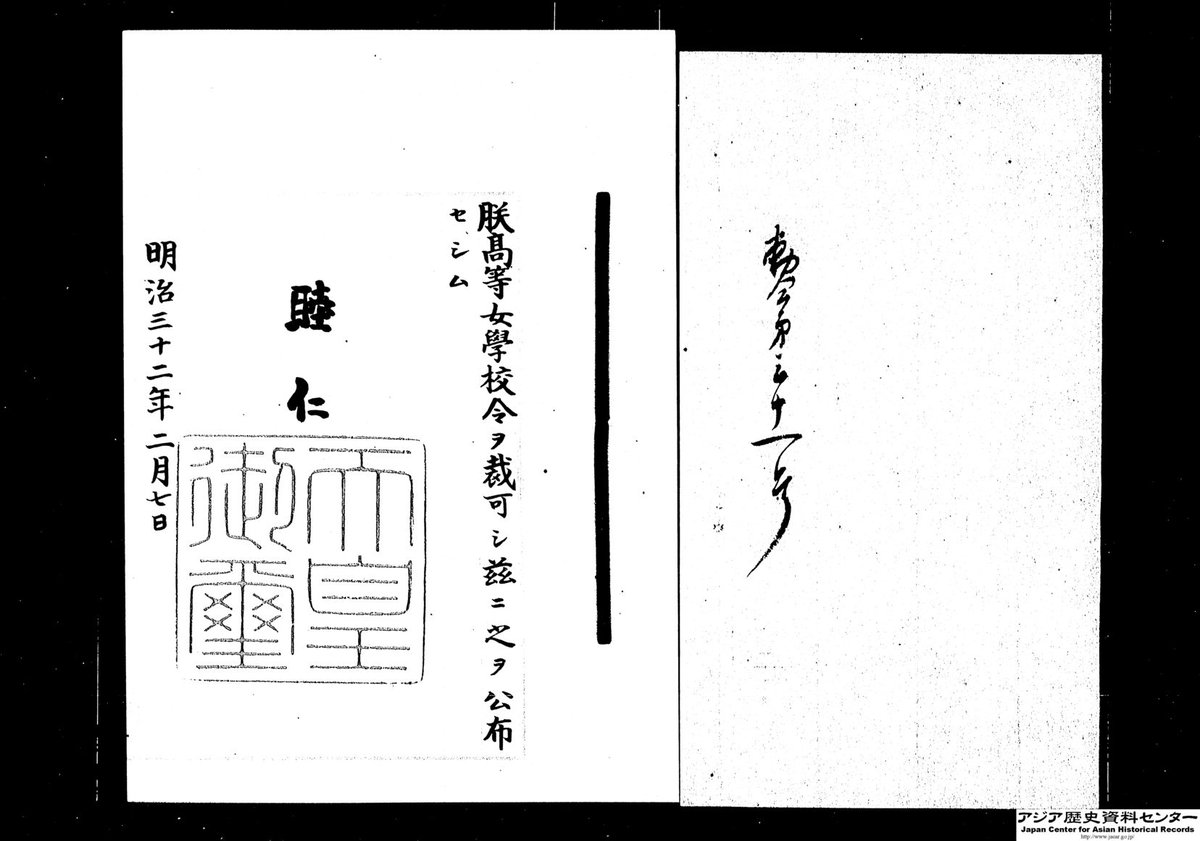 勅令第三十一号
朕高等女學校令ヲ裁可シ茲ニ之ヲ公布
セシム
睦仁
天皇
御璽
明治三十二年二月七日
アジア歴史資料センター
Japan Center for Asian Historical Records
http://www.jacar.go.jp/